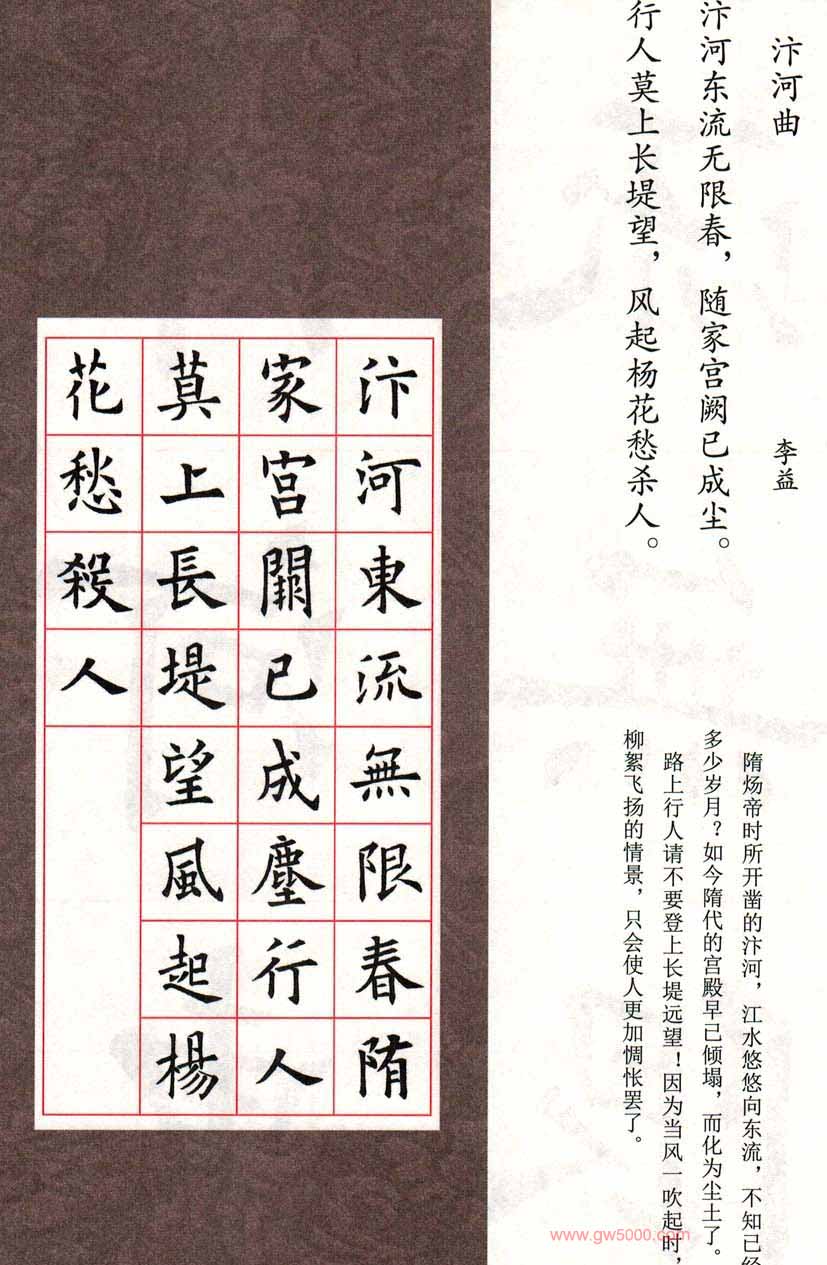 汴河曲
李益
汴河东流无限春，随家宫阙已成尘。
行人莫上长堤望，风起杨花愁杀人。
隋炀帝时所开凿的汴河，江水悠悠向东流，不知已经
多少岁月？如今隋代的宫殿早已倾塌，而化为尘土了。
路上行人请不要登上长堤远望！因为当风一吹起时，
柳絮飞扬的情景，只会使人更加惆怅罢了。
汴河東流無限春隋
家宮闕已成塵行人
莫上長堤望風起楊
花愁殺人
www.gw5000.com